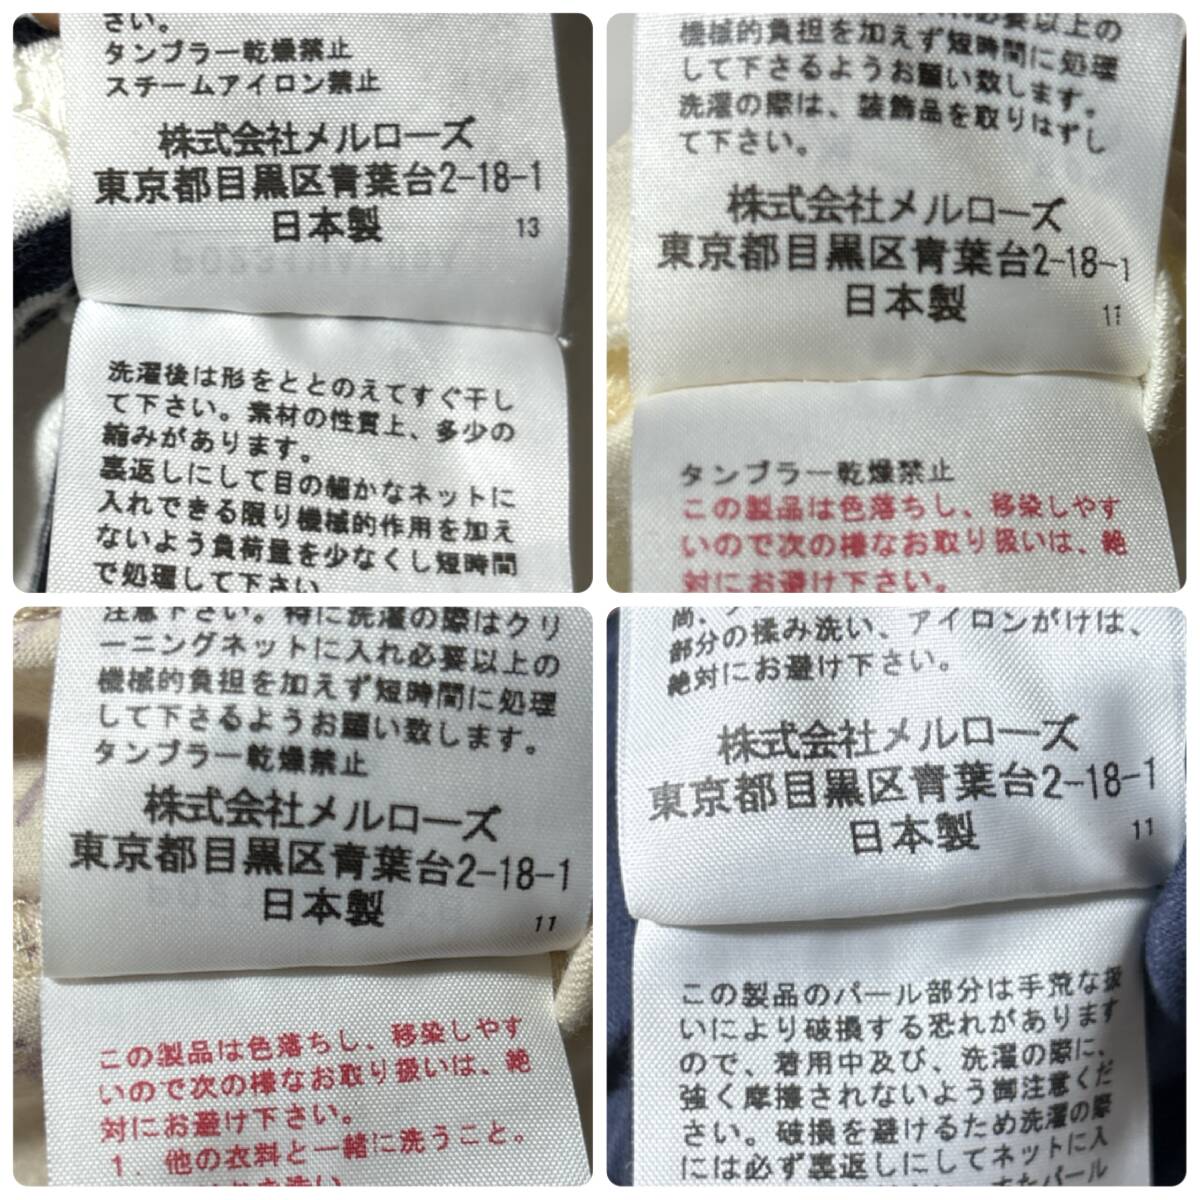 さい。
タンブラー乾燥禁止
スチームアイロン禁止
株式会社メルローズ
東京都目黒区青葉台2-18-1
日本製
13
洗濯後は形をととのえてすぐ干し
て下さい。素材の性質上、多少の
縮みがあります。
裏返しにして目の細かなネットに
入れできる限り機械的作用を加え
ないよう負荷量を少なくし短時間
で処理して下さい
機械的負担を加えず短時間に処理
して下さるようお願い致します。
洗濯の際は、装飾品を取りはずし
て下さい。
株式会社メルローズ
東京都目黒区青葉台2-18-1
日本製
11
タンブラー乾燥禁止
この製品は色落ちし、移染しやす
いので次の様なお取り扱いは、絶
対にお避け下さい。
注意下さい。特に洗濯の際はクリ
ーニングネットに入れ必要以上の
機械的負担を加えず短時間に処理
して下さるようお願い致します。
タンブラー乾燥禁止
株式会社メルローズ
東京都目黒区青葉台2-18-1
日本製
11
この製品は色落ちし、移染しやす
いので次の様なお取り扱いは、絶
対にお避け下さい。
1．他の衣料と一緒に洗うこと。
部分の揉み洗い、アイロンがけは、
絶対にお避け下さい。
株式会社メルローズ
東京都目黒区青葉台2-18-1
日本製
11
この製品のパール部分は手荒な扱
いにより破損する恐れがあります
ので、着用中及び、洗濯の際に、
強く摩擦されないよう御注意くだ
さい。破損を避けるため洗濯の際
には必ず裏返しにしてネットに入